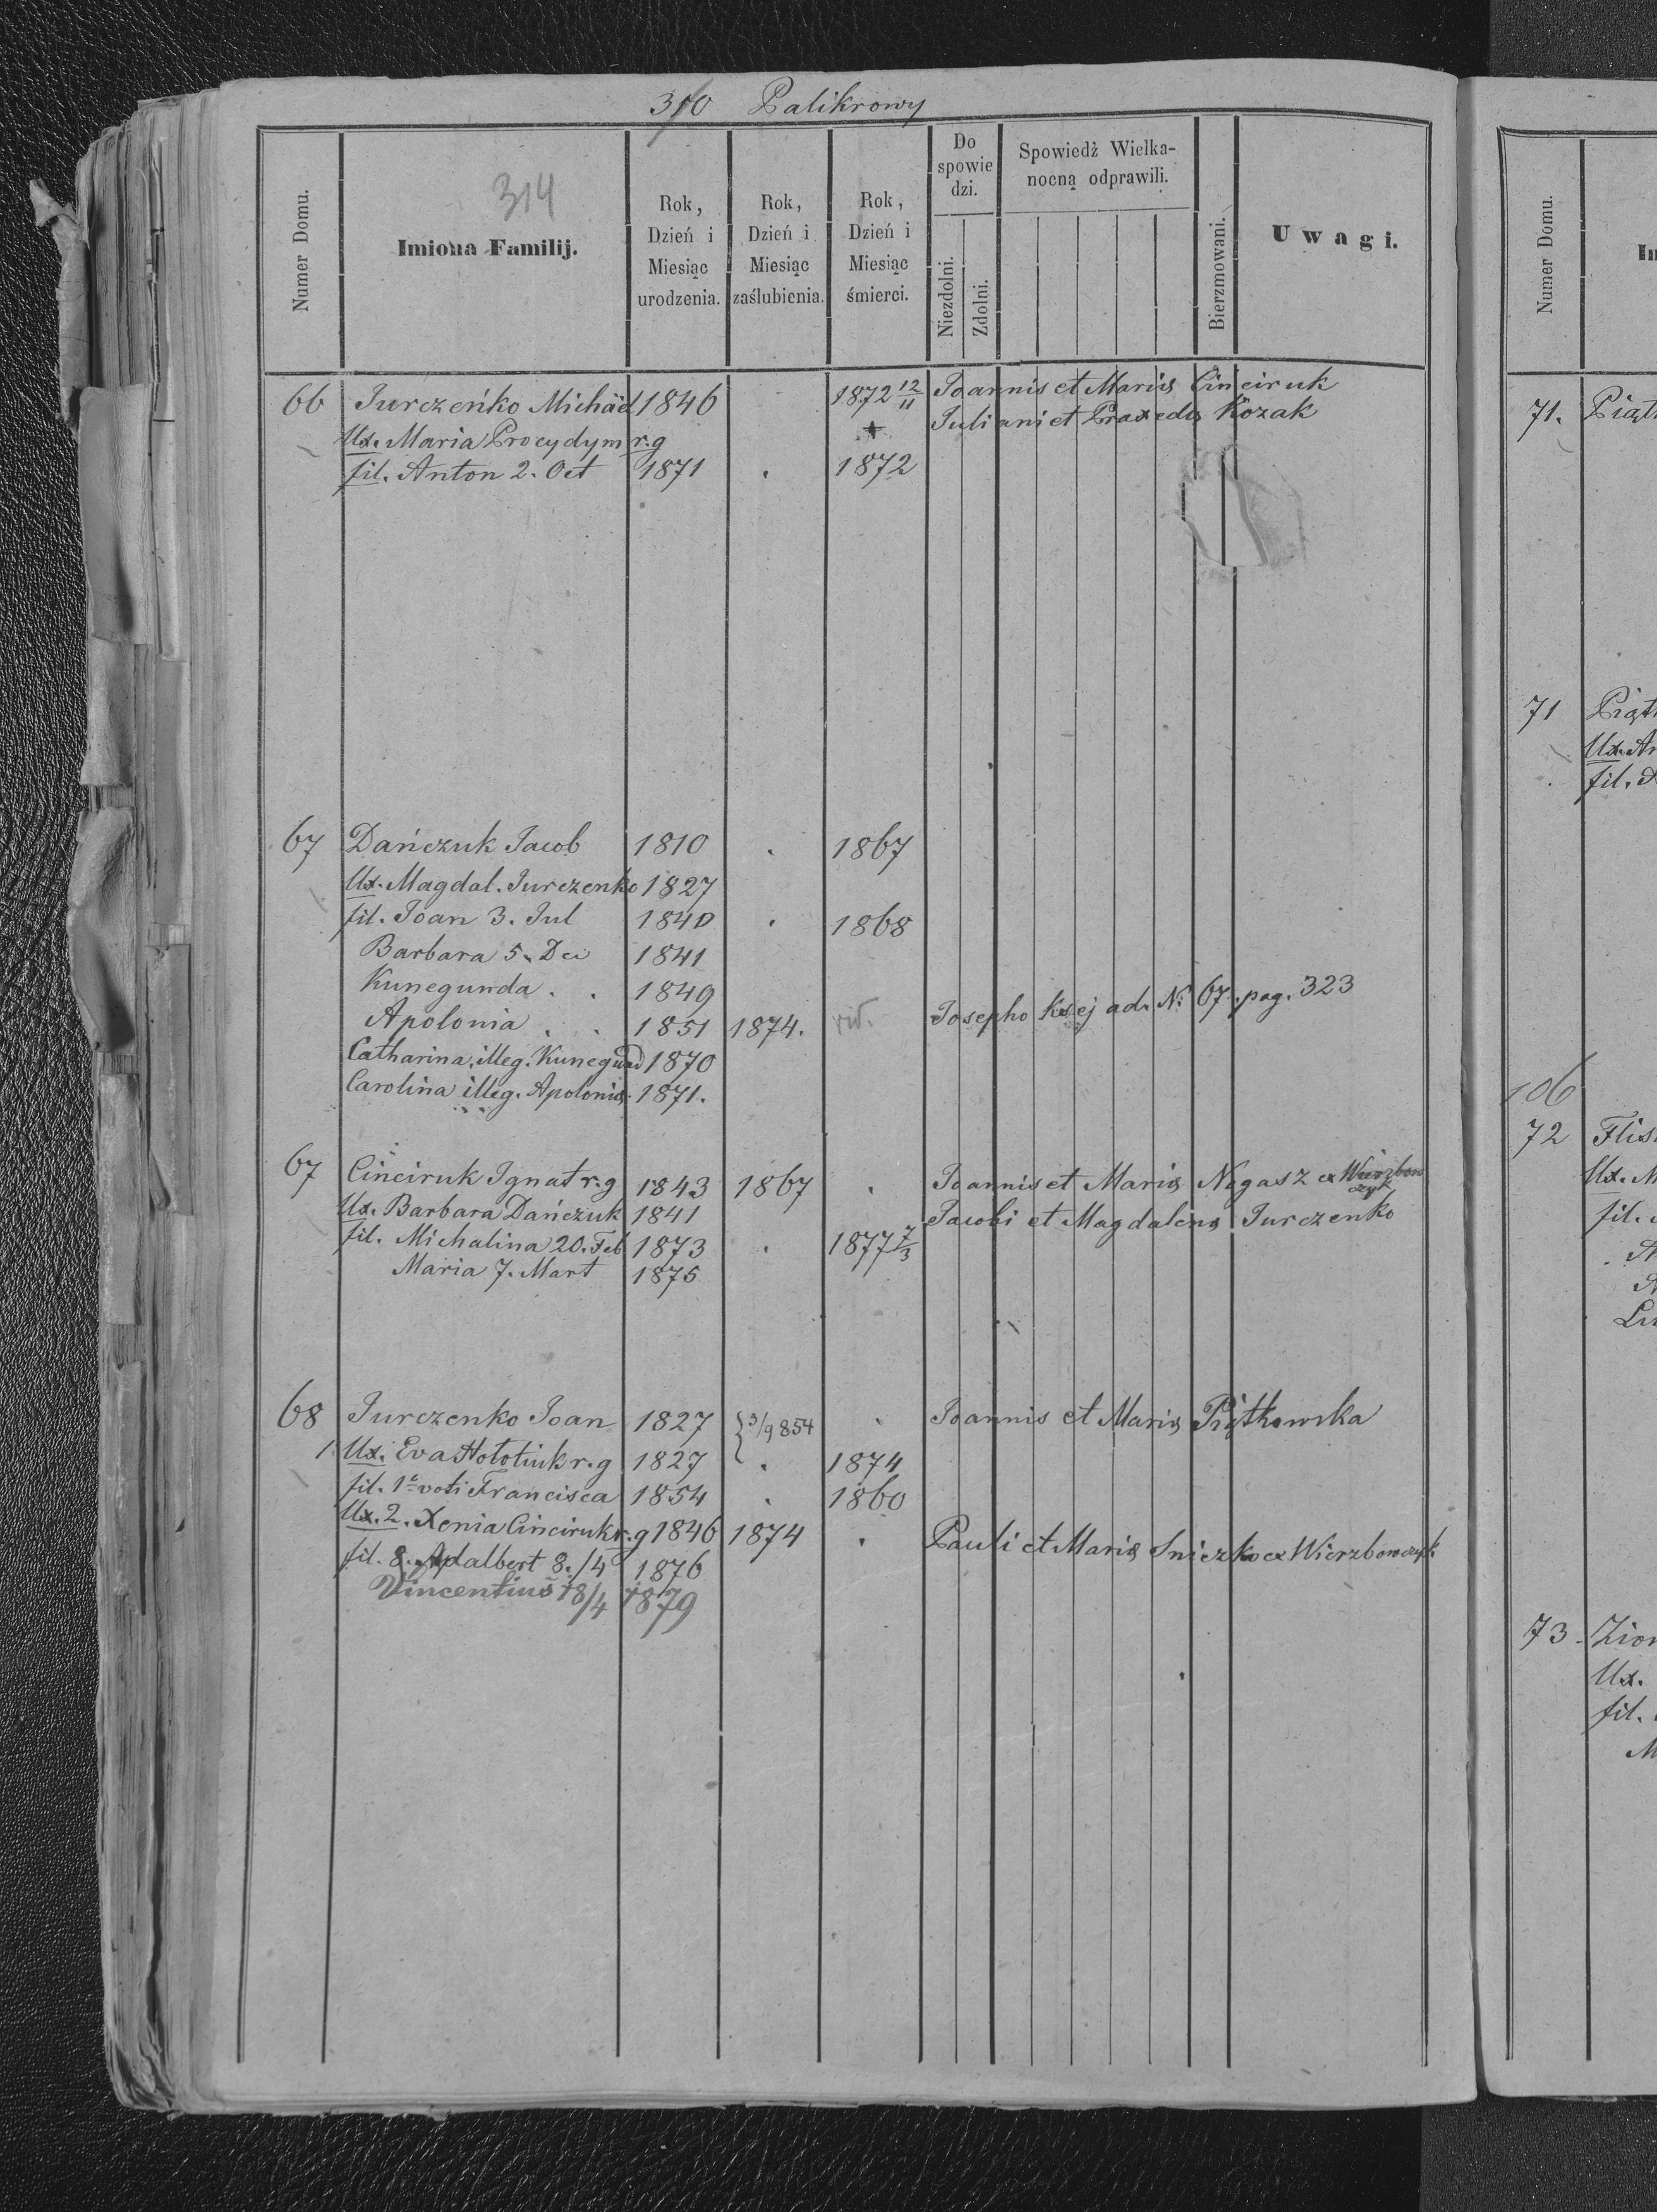 310 Palikrowy
314
Numer Domu.
Imiona Familij.
Rok, Dzień i Miesiąc urodzenia.
Rok, Dzień i Miesiąc zaślubienia.
Rok, Dzień i Miesiąc śmierci.
Do spowie dzi.
Niezdolni.
Zdolni.
Spowiedź Wielka-
nocną odprawili.
Bierzmowani.
Uwagi.
66 Jurczeńko Michael 1846 1872 12/11 Joannis et Maria Cinciruk
Ux. Maria Procydym r.g Juliani et Praxeda Kozak
fil. Anton 2. Oct 1871 . 1872
67 Dańczuk Jacob 1810 . 1867
Ux. Magdal. Jurczenko 1827
fil. Joan 3. Jul 1840 . 1868
Barbara 5. Dec 1841
Kunegunda . . 1849
Apolonia . . 1851 1874. Josepho Ksej ad. N. 67. pag. 323
Catharina illeg. Kunegund 1870
Carolina illeg. Apolonia. 1871.
67 Cinciruk Ignat r.g 1843 1867 . Joannis et Maria Nogasz ex Wierzbow
czyk
Ux. Barbara Dańczuk 1841 Jacobi et Magdalena Jurczenko
fil. Michalina 20. Feb 1873 . 1877 7/3
Maria 7. Mart 1875
68 Jurczenko Joan 1827 {3/9 854 . Joannis et Maria Piątkowska
1 Ux. Eva Hototiuk r.g 1827 . 1874
fil. 1º voti Francisca 1854 . 1860
Ux. 2. Xenia Cinciruk r.g 1846 1874 . Pauli et Maria Sniezko ex Wierzbowczyk
fil. 8. Adalbert 8./4 1876
Vincentius 18/4 1879
Numer Domu.
Im
71. Piąt
71 Piąt
Ux. An
fil. A
106
72 Flis
Ux. M
fil.
A
A
Lu
73. Zion
Ux.
fil.
M